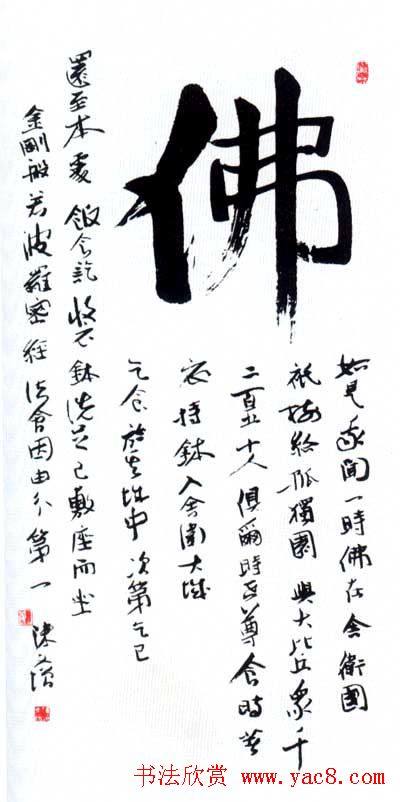 佛
如是我聞一時佛在舍衛國
祇樹給孤獨園與大比丘眾千
二百五十人俱爾時世尊食時著
衣持鉢入舍衛大城
乞食於其城中次第乞已
還至本處飯食訖收衣鉢洗足已敷座而坐
金剛般若波羅蜜經法會因由分第一
陳
书法欣赏 www.yac8.com